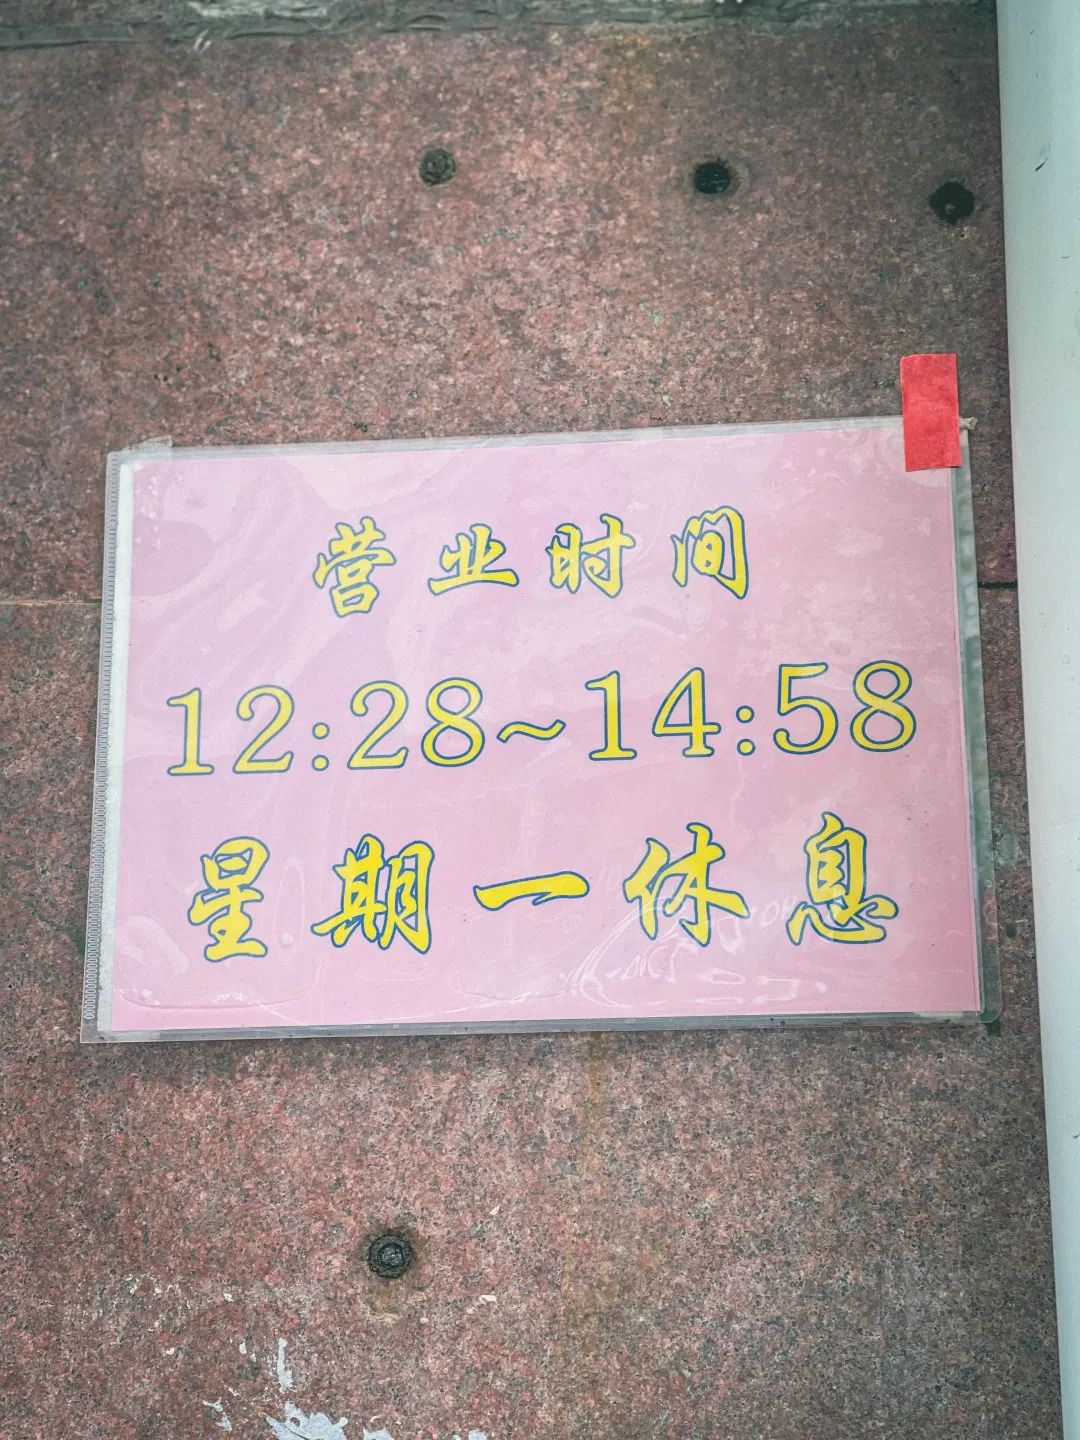 营业时间
12:28~14:58
星期一休息